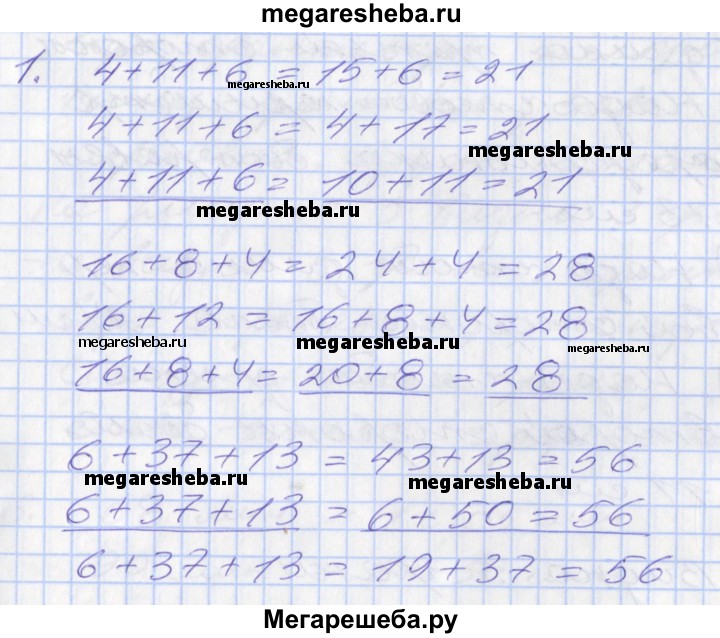 megaresheba.ru
1. 4+11+6 = 15+6 = 21
megaresheba.ru
4+11+6 = 4+17 = 21
megaresheba.ru
4+11+6 = 10+11 = 21
megaresheba.ru
16+8+4 = 24+4 = 28
16+12 = 16+8+4 = 28
megaresheba.ru megaresheba.ru megaresheba.ru
16+8+4 = 20+8 = 28
6+37+13 = 43+13 = 56
megaresheba.ru megaresheba.ru
6+37+13 = 6+50 = 56
6+37+13 = 19+37 = 56
Мегарешеба.ру